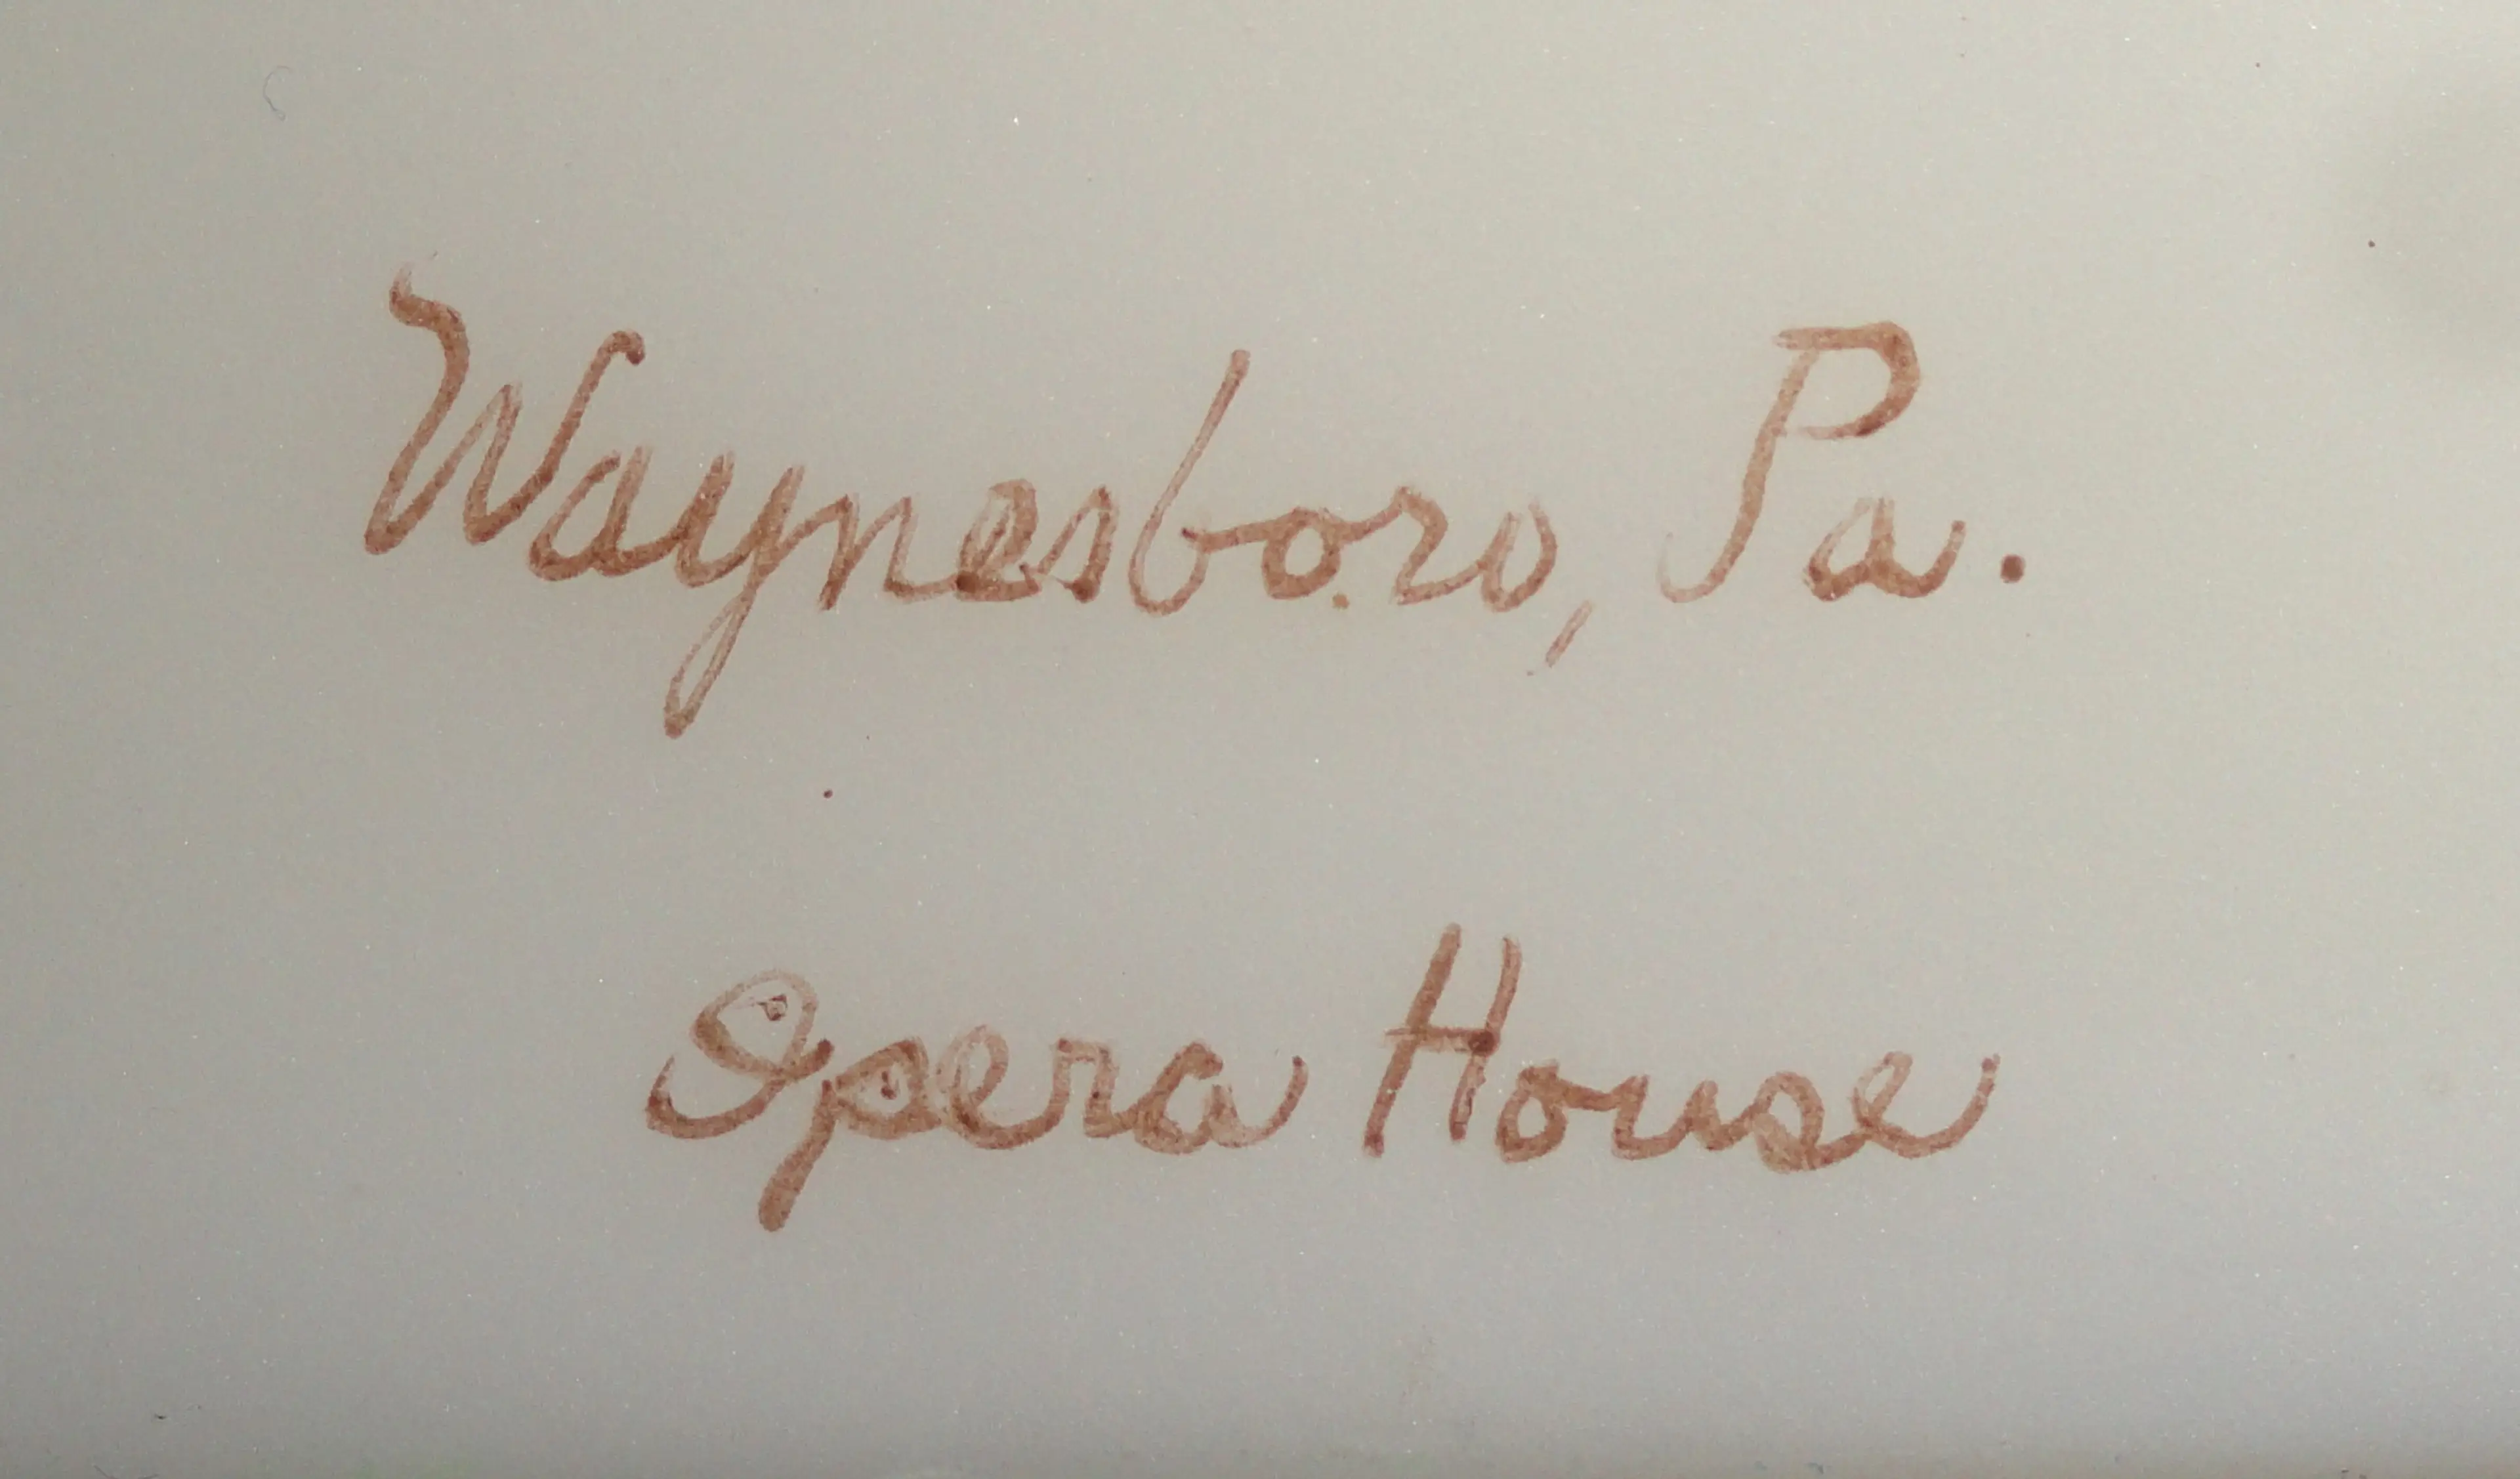 Waynesboro, Pa.
Opera House